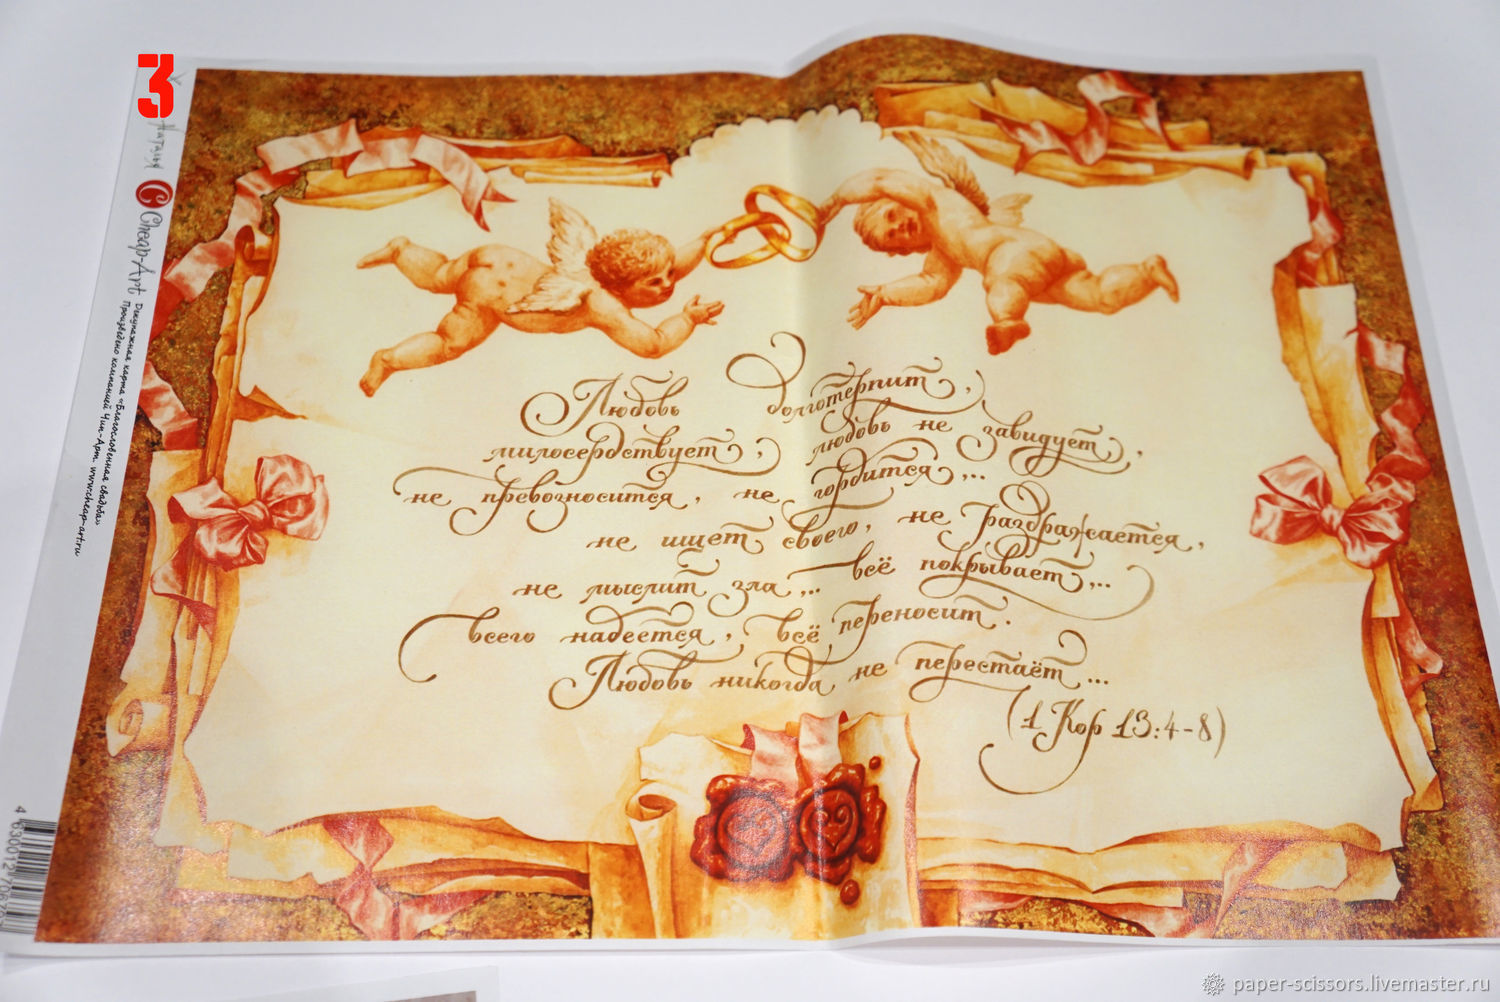 3
Наталья
Cheap-Art
Декупажная карта «Благословенная свадьба»
Произведено компанией Чип-Арт. www.cheap-art.ru
Любовь долготерпит,
милосердствует, любовь не завидует,
не превозносится, не гордится,..
не ищет своего, не раздражается,
не мыслит зла,.. всё покрывает,..
всего надеется, всё переносит.
Любовь никогда не перестаёт...
(1 Кор 13:4-8)
paper-scissors.livemaster.ru